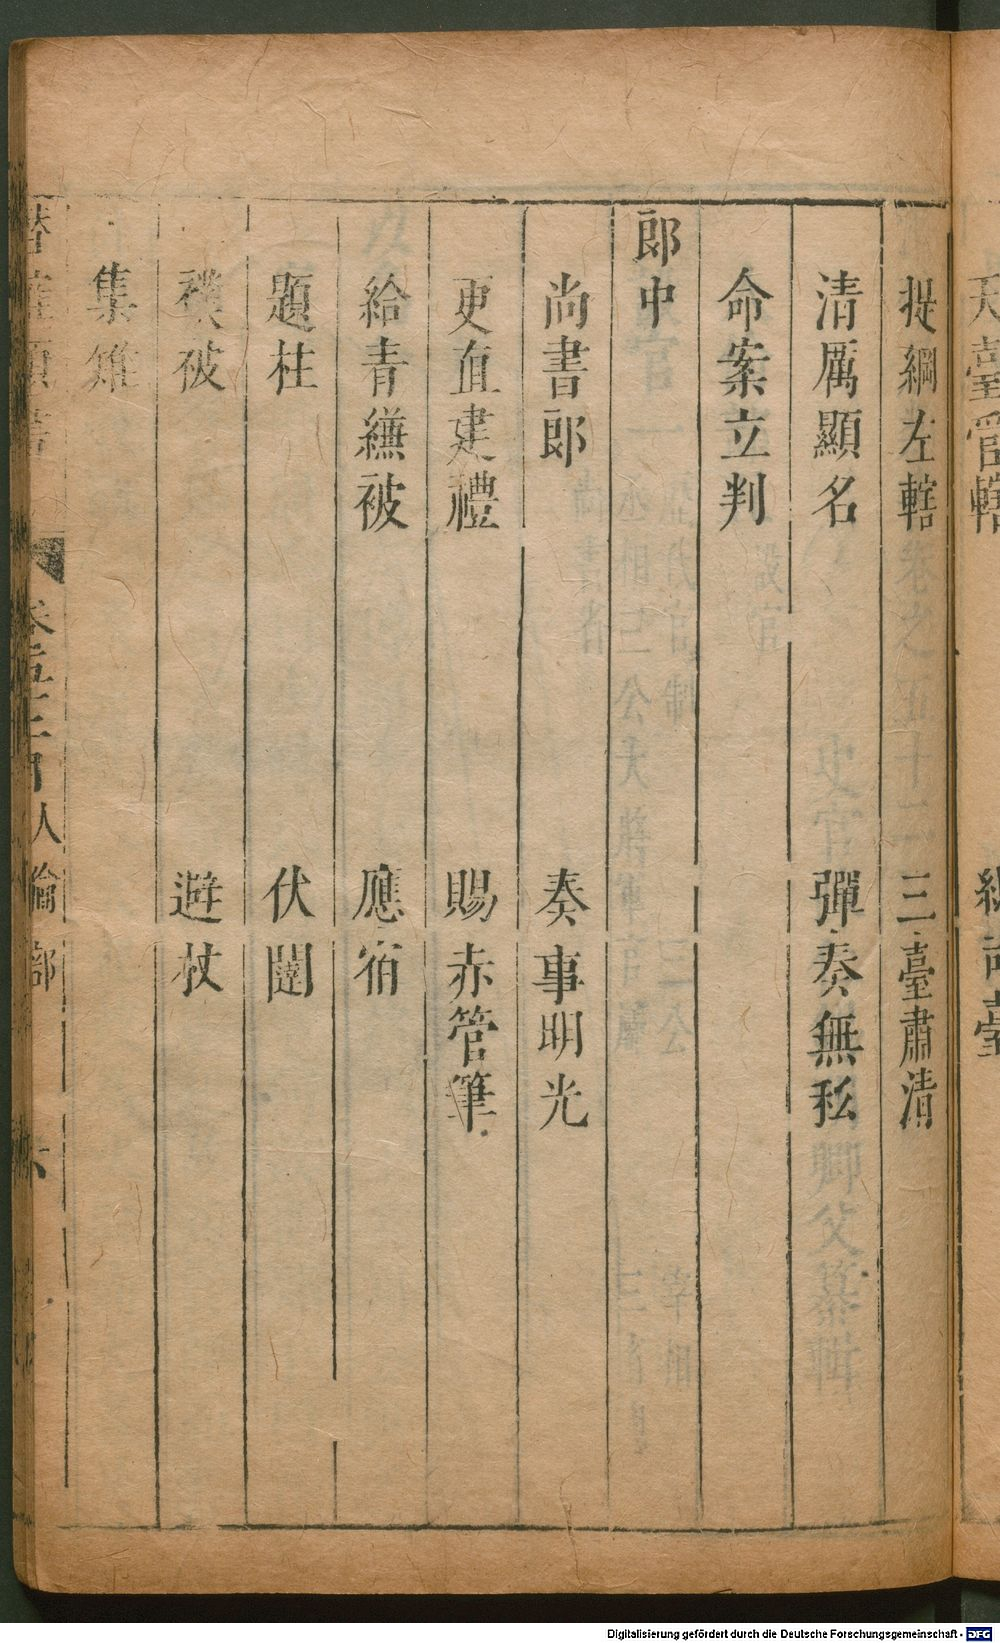 天臺官轄
提綱左轄　三臺肅清
清厲顯名　彈奏無私
命案立判
郎中
尚書郎　奏事明光
更直建禮　賜赤管筆
給青縑被　應宿
題柱　伏闥
襆被　避杖
集雉
人倫部　六
Digitalisierung gefördert durch die Deutsche Forschungsgemeinschaft - DFG